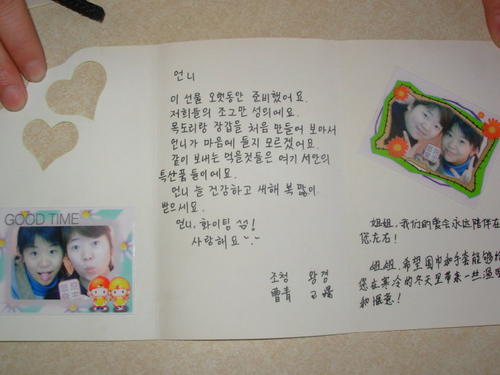 언니
이 선물 오랫동안 준비했어요.
저희들의 조그만 성의에요.
목도리랑 장갑을 처음 만들어 보아서
언니가 마음에 들지 모르겠어요.
같이 보내는 먹을것들은 여기 서안의
특산품들이에요.
언니 늘 건강하고 새해 복 많이
받으세요.
언니, 화이팅
사랑해요
조청 왕경
曹青
GOOD TIME
姐姐,我们的爱会永远陪伴在
您左右!
姐姐,希望围巾和手套能够给
您在寒冷的冬天里带来一些温暖
和惬意!